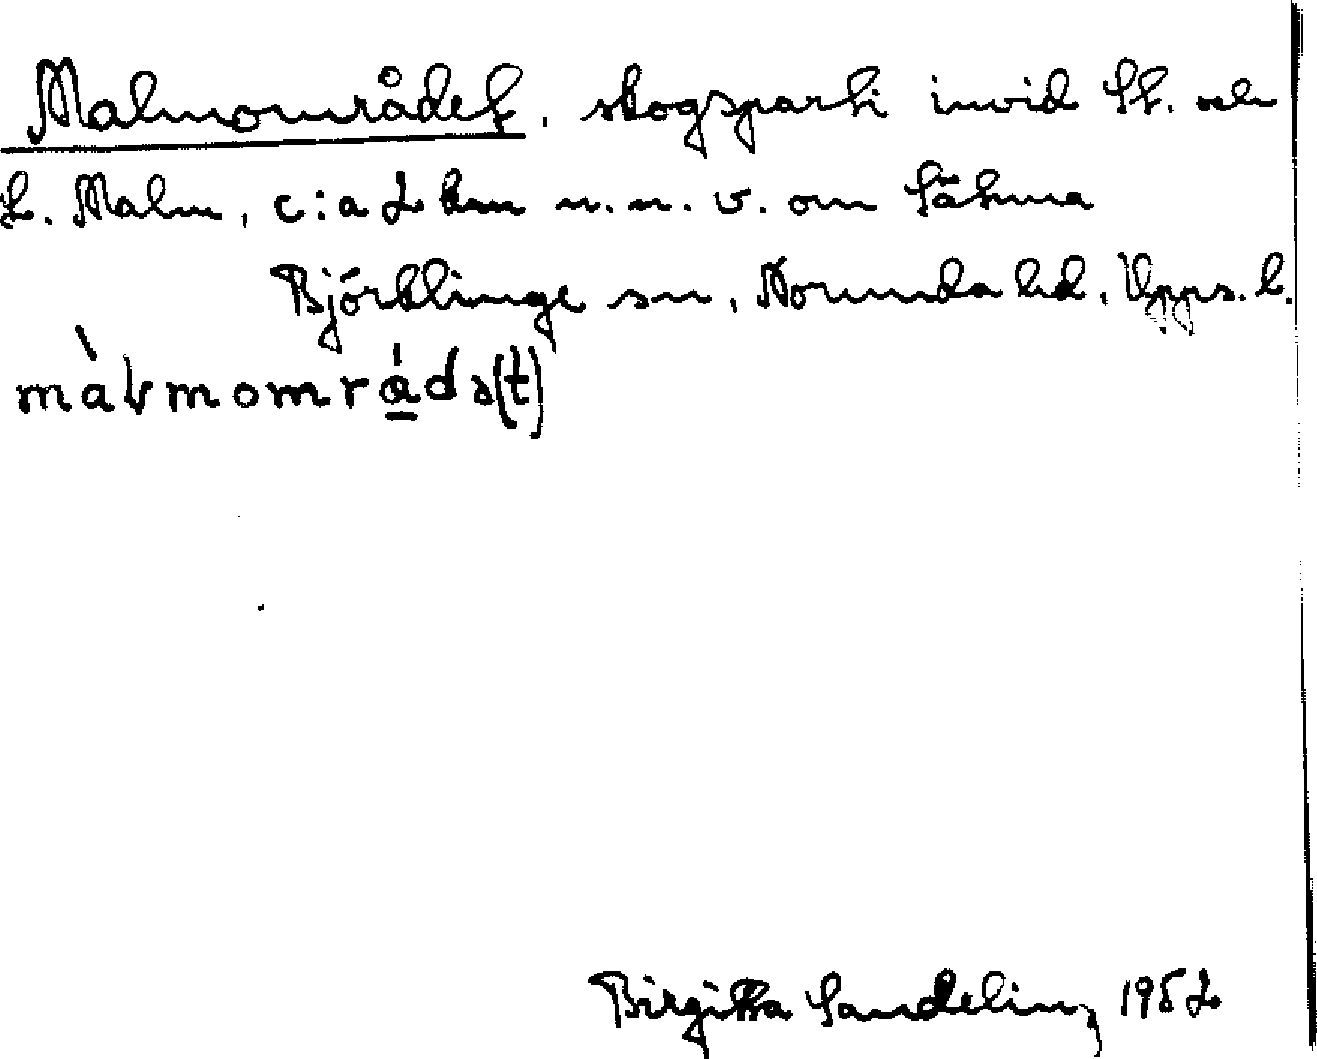 Malmområdet, skogsparti invid St. och
L. Malm, c:a 2 km n.n.v. om Sätuna
Björklinge sn, Norunda hd, Upps. l.
màɫmomrǻdə(t)
Birgitta Sandelin, 1952